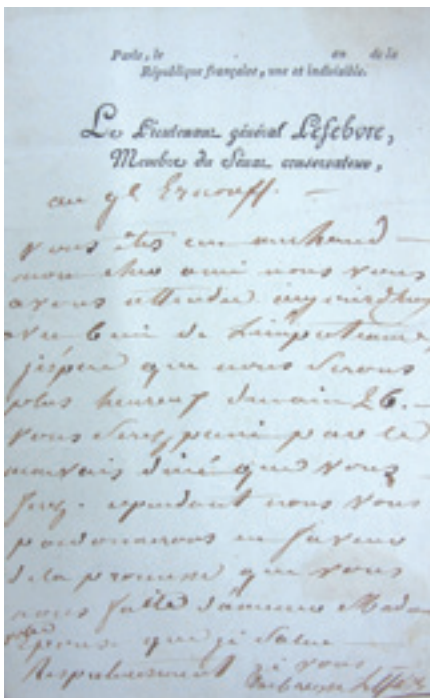 Paris, le an de la
République française, une et indivisible.
Le Lieutenant général Lefebvre,
Membre du Sénat conservateur,
au gl Ernouff. —
vous êtes un marchand —
mon cher ami nous vous
avons attendu aujourd'huy
avec de l'impatience,
j'espere que nous serons
plus heureux demain 26. —
vous serez puni par le
mauvais diné que vous
ferez. cependant nous vous
pardonnerons en faveur
de la promesse que vous
nous faite d'amener Madame
votre Epouse que je salue
Respectueusement je vous
embrasse Lefebvre